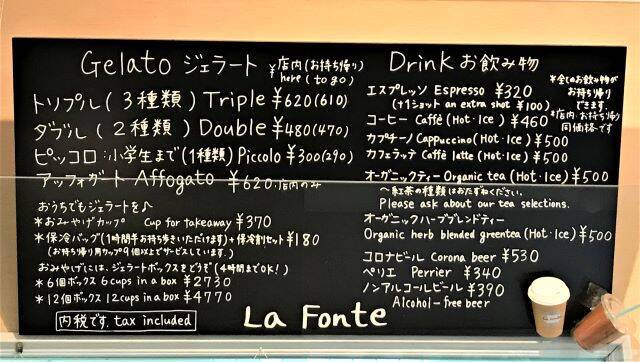 Gelato ジェラート ¥店内(お持ち帰り) here (to go)
トリプル(3種類) Triple ¥620(610)
ダブル(2種類) Double ¥480(470)
ピッコロ:小学生まで(1種類) Piccolo ¥300(290)
アッフォガート Affogato ¥620:店内のみ
おうちでもジェラートを♪
*おみやげカップ Cup for takeaway ¥370
*保冷バッグ(1時間半お持ち歩きいただけます)+保冷剤セット¥180
(お持ち帰り用カップ9個以上でサービスしています。)
おみやげには、ジェラートボックスをどうぞ(4時間までOK!)
*6個ボックス 6cups in a box ¥2730
*12個ボックス 12cups in a box ¥4770
内税です. tax included
Drink お飲み物
*全てのお飲み物が
お持ち帰り
できます.
*店内・お持ち帰り
同価格です
エスプレッソ Espresso ¥320
(+1ショット an extra shot ¥100)
コーヒー Caffè (Hot・Ice) ¥460
カプチーノ Cappuccino (Hot・Ice) ¥500
カフェラッテ Caffè latte (Hot・Ice) ¥500
オーガニックティー Organic tea (Hot・Ice) ¥500
〜紅茶の種類はおたずねください.
Please ask about our tea selections.
オーガニックハーブブレンドティー
Organic herb blended greentea (Hot・Ice) ¥500
コロナビール Corona beer ¥530
ペリエ Perrier ¥340
ノンアルコールビール ¥390
Alcohol-free beer
La Fonte